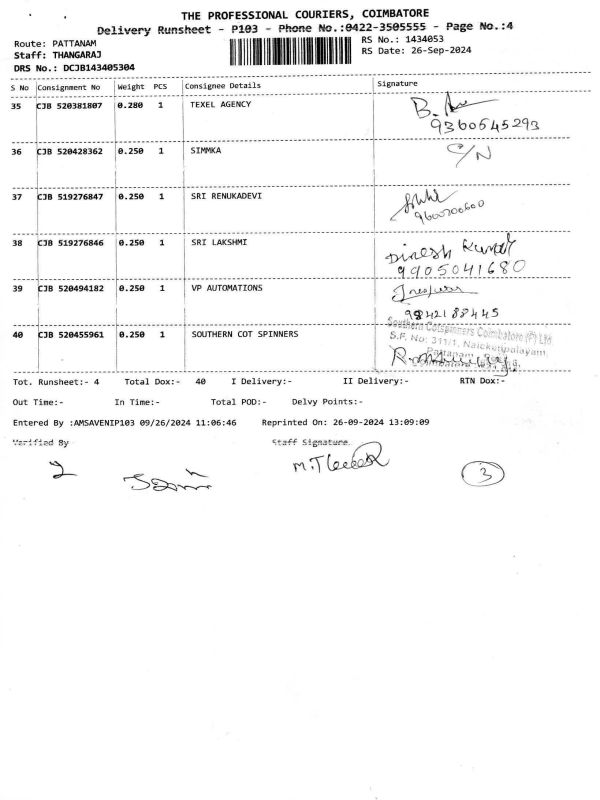 THE PROFESSIONAL COURIERS, COIMBATORE
Delivery Runsheet - P103 - Phone No.:0422-3505555 - Page No.:4
Route: PATTANAM
RS No.: 1434053
Staff: THANGARAJ
RS Date: 26-Sep-2024
DRS No.: DCJB143405304
S No Consignment No Weight PCS Consignee Details Signature
35 CJB 520381807 0.280 1 TEXEL AGENCY
9360645293
36 CJB 520428362 0.250 1 SIMMKA C/N
37 CJB 519276847 0.250 1 SRI RENUKADEVI
9600700600
38 CJB 519276846 0.250 1 SRI LAKSHMI Dinesh Kumar
9905041680
39 CJB 520494182 0.250 1 VP AUTOMATIONS
9842188445
40 CJB 520455961 0.250 1 SOUTHERN COT SPINNERS
Southern Cotspinners Coimbatore (P) Ltd
S.F. No: 311/1, Naickenpalayam,
Pattanam
Tot. Runsheet:- 4 Total Dox:- 40 I Delivery:- II Delivery:- RTN Dox:-
Out Time:- In Time:- Total POD:- Delvy Points:-
Entered By :AMSAVENIP103 09/26/2024 11:06:46 Reprinted On: 26-09-2024 13:09:09
Verified By Staff Signature
3